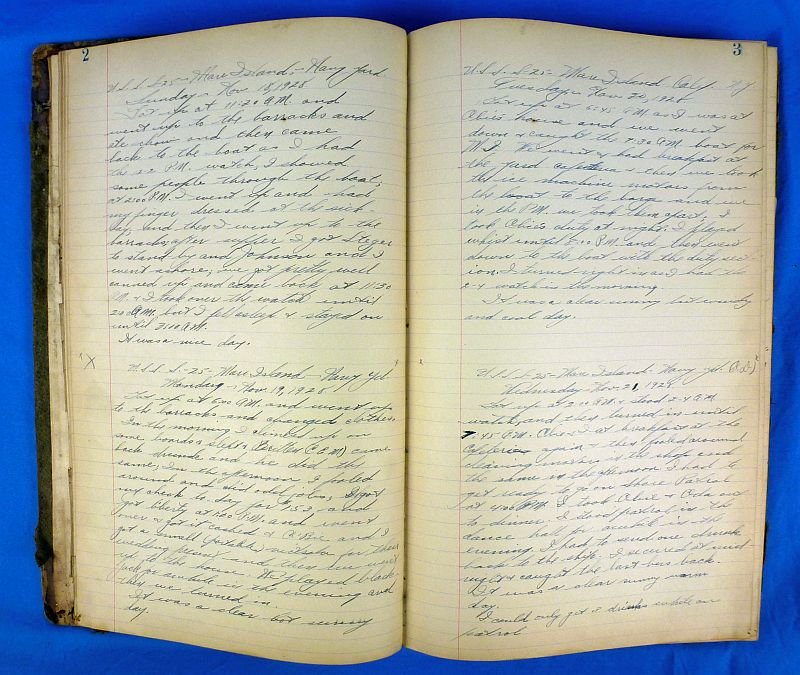 2
U.S.S. S-25 - Mare Island, - Navy Yard
Sunday - Nov. 18, 1928
Got up at 11:20 A.M. and
went up to the barracks and
ate chow and then came
back to the boat as I had
the watch, I showed
some people through the boat;
at 2:00 P.M. I went up and had
my finger dressed at the sick-
bay and then I went up to the
barracks, after supper I got Steger
to stand by and Johnson and I
went ashore; we got pretty well
canned up and came back at 11:30
P.M. & I took over the watch until
2:00 A.M. but I fell asleep & stayed on
until A.M.
It was a nice day.
"X"
U.S.S. S-25 - Mare Island - Navy Yd.
Monday - Nov. 19, 1928
Got up at 6:00 A.M. and went up
to the barracks and changed clothes.
In the morning I up on
some boards & slept, (C.O.M) came
back drunk and he did the
same; In the afternoon I fooled
around and did odd jobs, I got
my check to day for and
got liberty at P.M. and went
over & got it cashed & Obie and I
got a small for their
wedding present and then we went
up to the house. We played black-
jack for awhile in the evening and
then we turned in.
It was a clear but sunny
day.
3
U.S.S. S-25 - Mare Island, Calif. N.Y.
Tuesday - Nov. 20, 1928
Got up at A.M. as I was at
Obie's house and we went
down & caught the 7:30 A.M. boat for
M.I. We went & had breakfast at
the yard cafeteria & then we took
the ice machine motors from
the boat to the barge and we
in the P.M. we took them apart; I
took Obie's duty at night. I played
whist until P.M. and then went
down to the boat with the duty sect-
ion. I turned right in as I had the
2-4 watch in the morning.
It was a clear sunny but windy
and cool day.
U.S.S. S-25 - Mare Island - Navy Yd.
Wednesday - Nov. 21, 1928
Got up at 2:00 A.M. & stood 2-4 A.M
watch, and then turned in until
7:45 A.M. Obie & I at breakfast at the
Cafeteria again & then fooled around
cleaning motors in the shop and
the same in the afternoon I had to
get ready to go on Shore Patrol
at 4:00 P.M. I took Obie & Oda out
to dinner. I stood patrol in the
dance hall for awhile in the
evening. I had to send one drunk
back to the ship. I secured at mid-
night & caught the last bus back.
It was a clear sunny warm
day.
I could only get 2 drinks while on
patrol